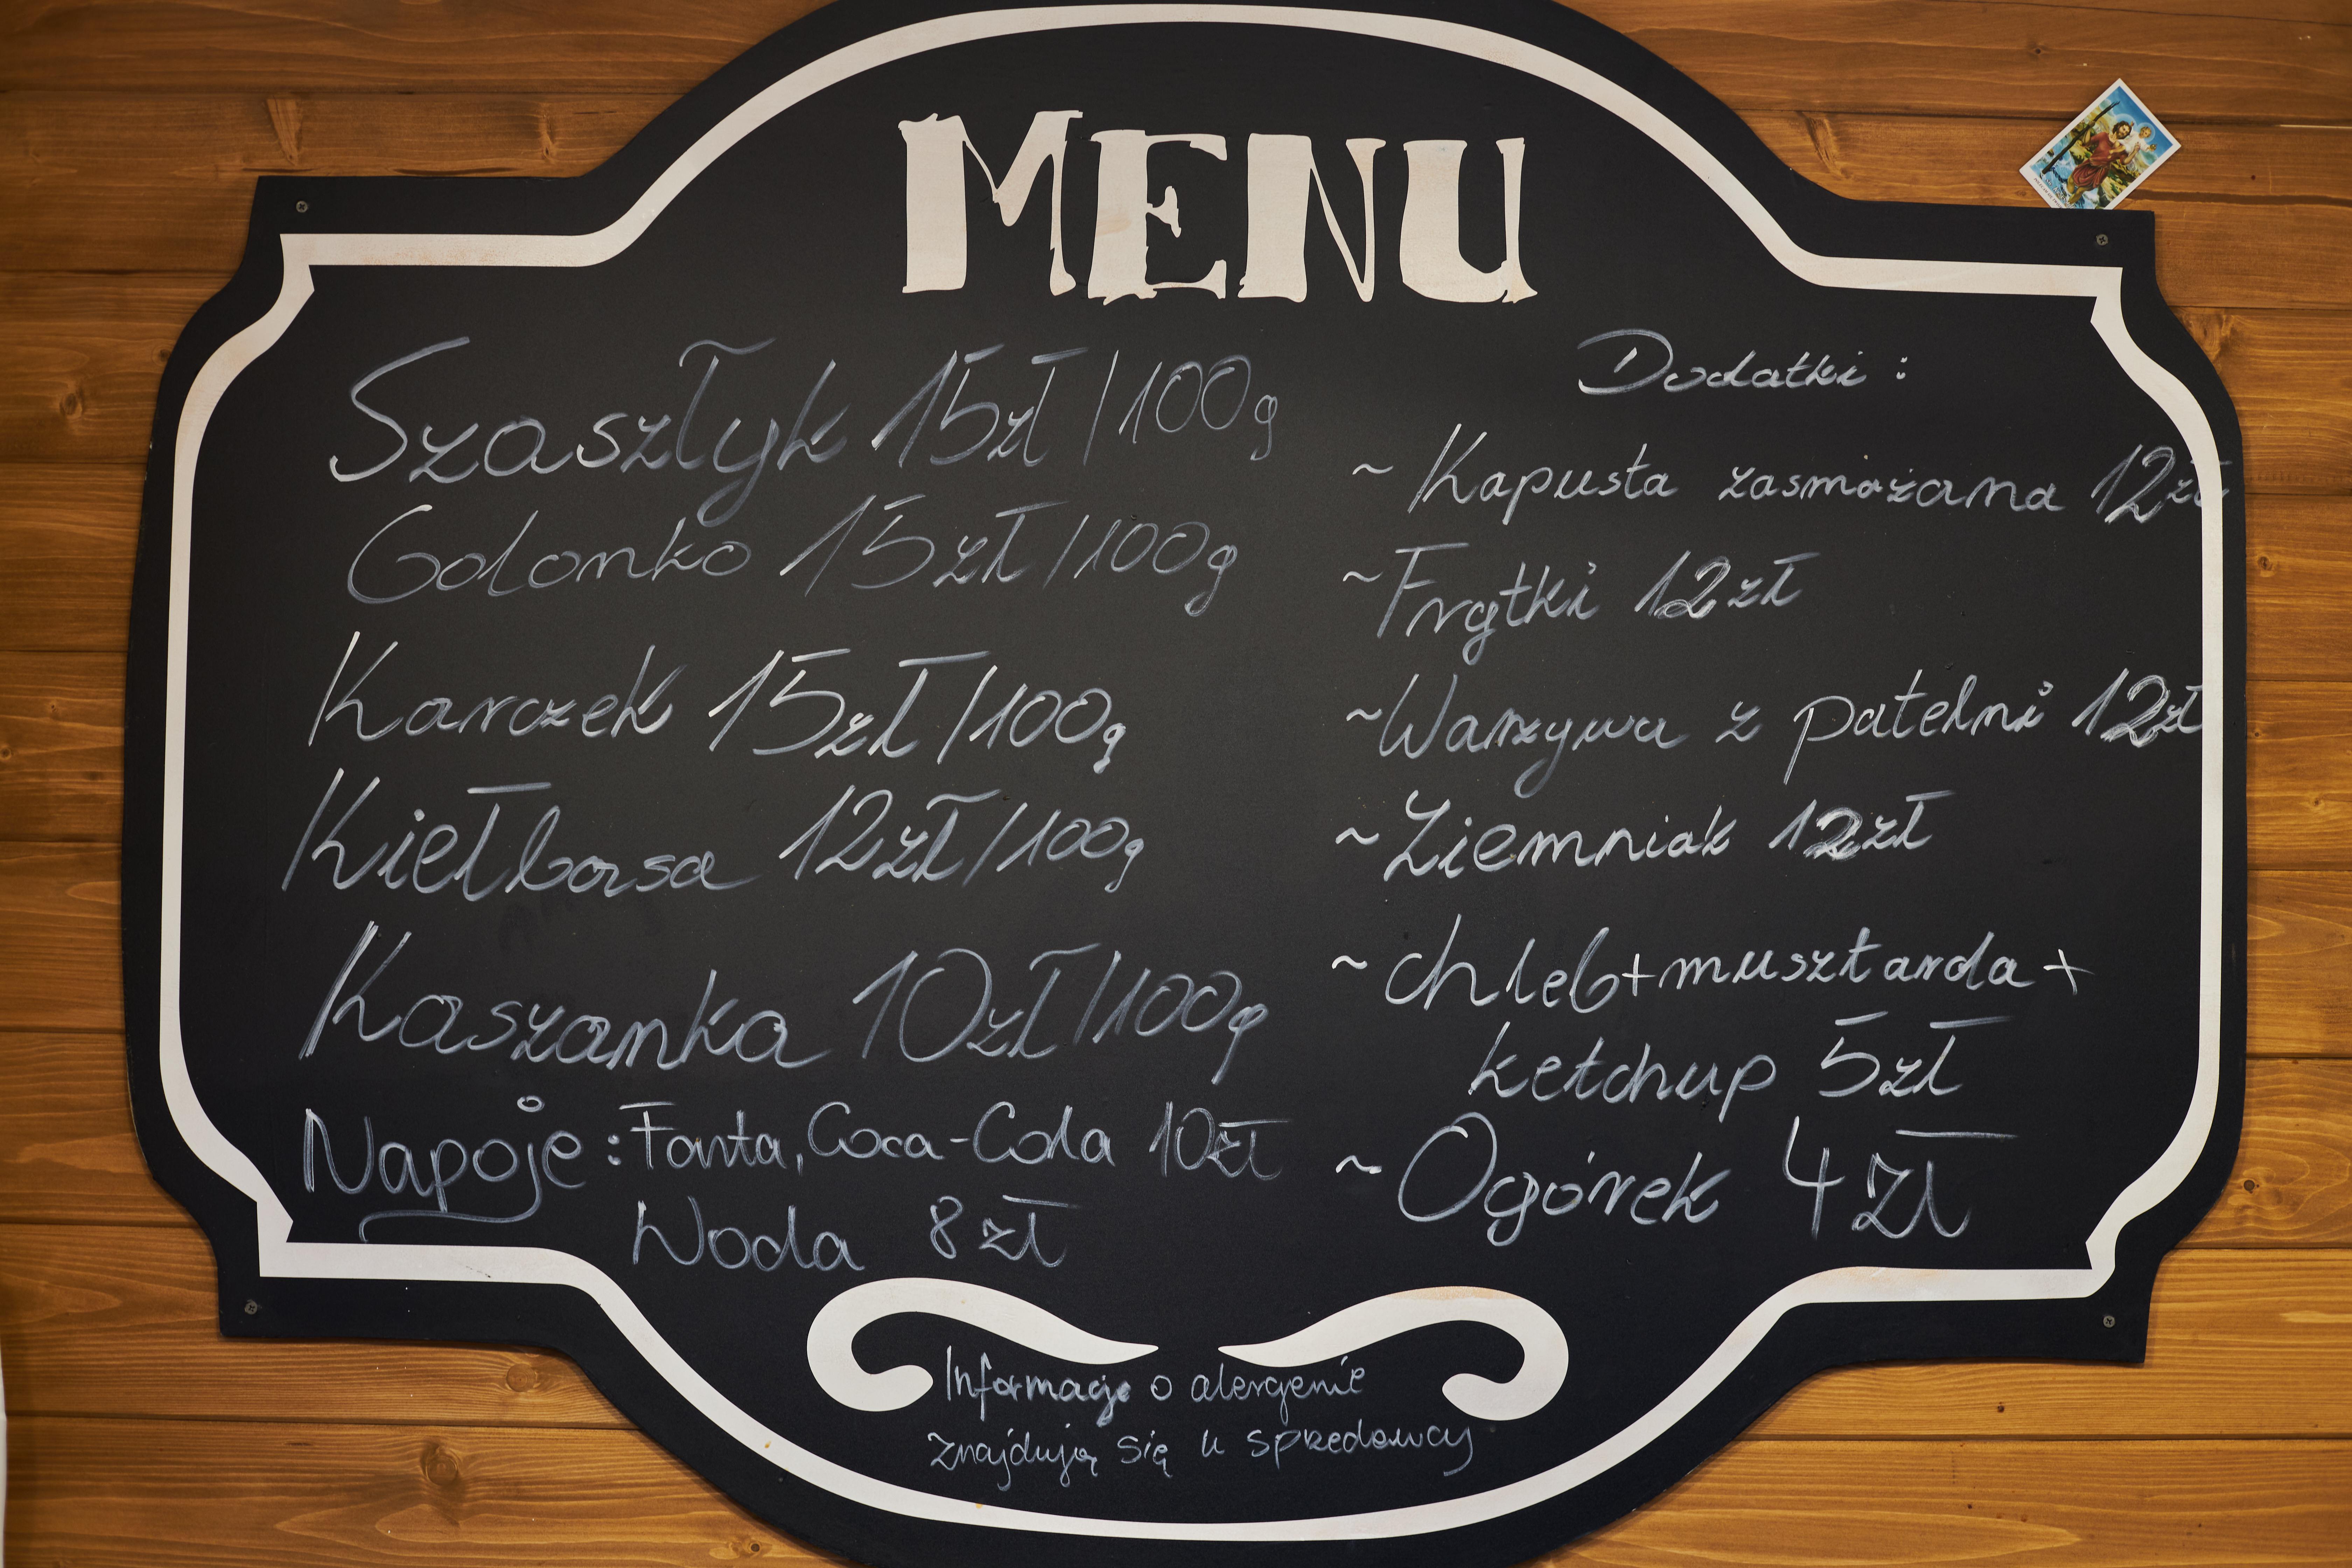 MENU
Szaszłyk 15zł/100g
Golonko 15zł/100g
Karczek 15zł/100g
Kiełbasa 12zł/100g
Kaszanka 10zł/100g
Napoje: Fanta, Coca-Cola 10zł
Woda 8zł
Dodatki:
~Kapusta zasmażana 12zł
~Frytki 12zł
~Warzywa z patelni 12zł
~Ziemniak 12zł
~chleb+musztarda+
ketchup 5zł
~Ogórek 4zł
Informacje o alergenie
znajdują się u sprzedawcy